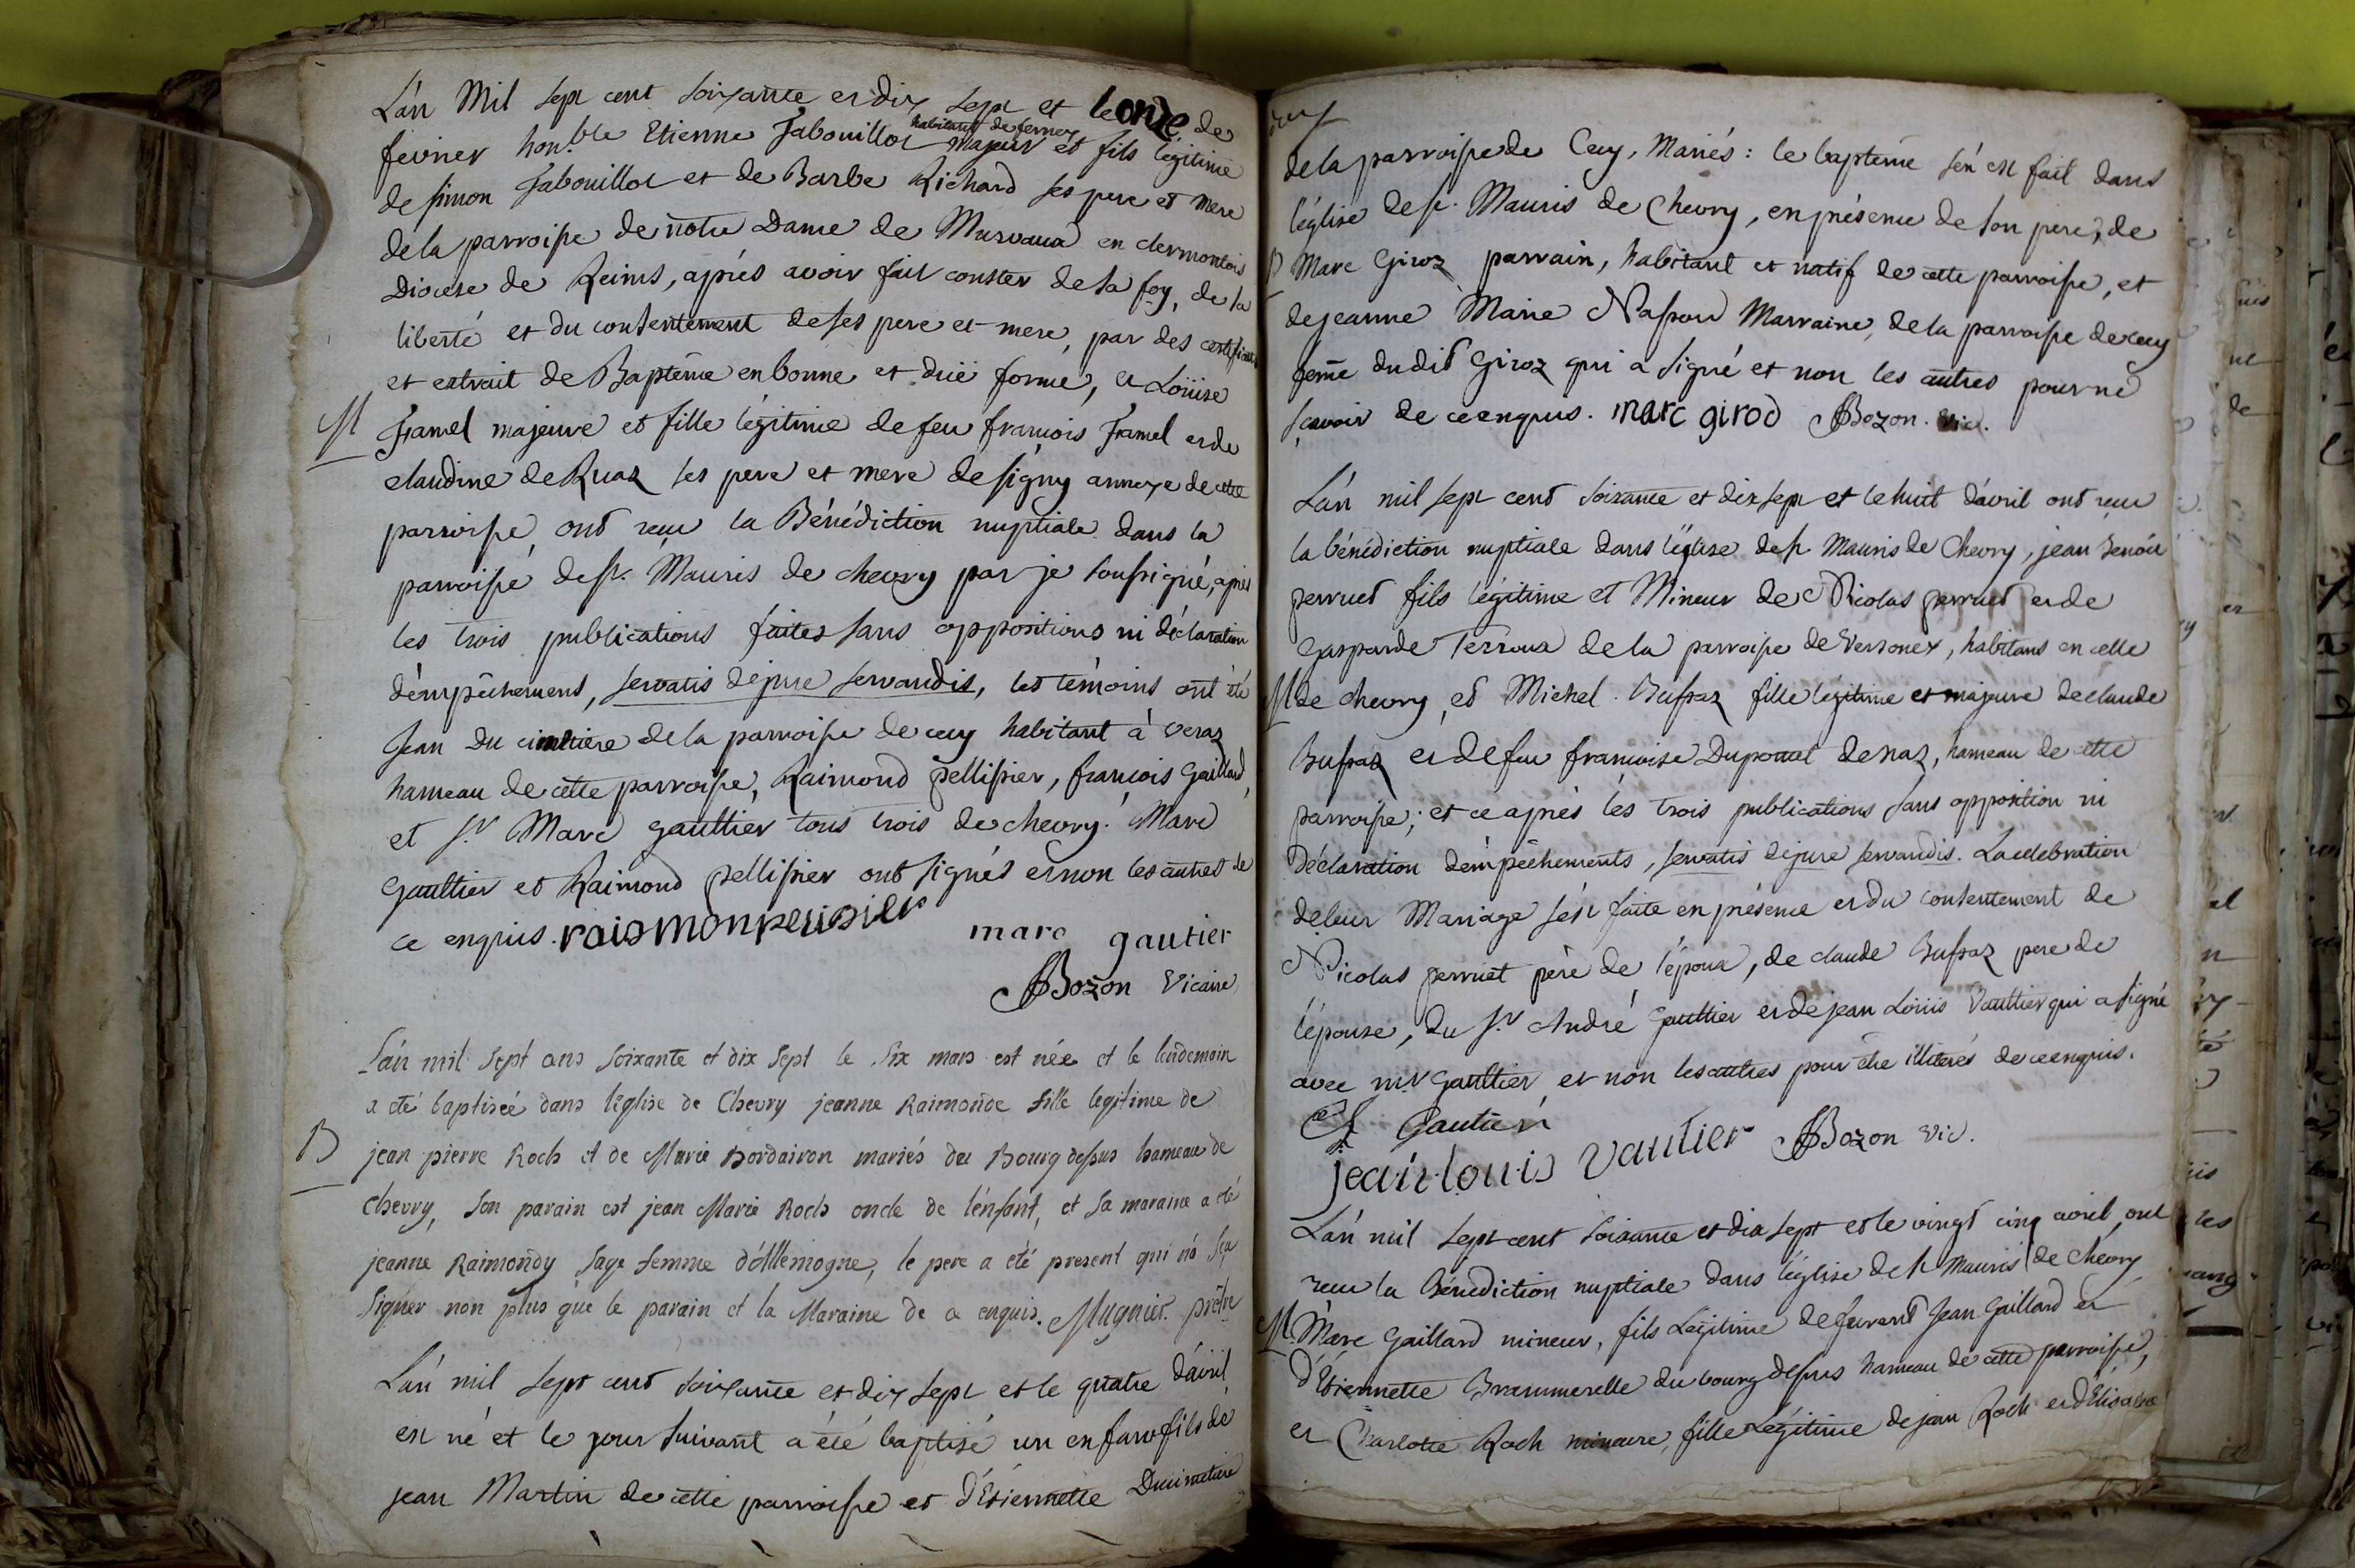 L'an Mil sept cent soixante et dix sept et le onze de
habitant de ferney
fevrier hon.ble Etienne Jabouillot majeur et fils légitime
de simon Jabouillot et de Barbe Richard ses pere et mere
de la parroisse de notre Dame de Murvaux en clermontois
Diocese de Reims, après avoir fait conster de sa foy, de sa
liberté et du consentement de ses pere et mere, par des certificats
et extrait de Baptême en bonne et düe forme, et Loüise
M
Framel majeure et fille légitime de feu francois Framel et de
claudine de Ruaz ses pere et mere de ségny annexe de cette
parroisse, ont reçu la Bénédiction nuptiale dans la
parroisse de st. Mauris de chevry par je soussigné, après
les trois publications faites sans oppositions ni déclaration
d'empêchement, servatis de jure servandis, les témoins ont été
Jean Du cimetiere de la parroisse de cecy habitant à veraz
hameau de cette parroisse, Raimond pellissier, francois Gaillard,
et sr. Marc gaultier tous trois de chevry. Marc
Gaultier et Raimond pellissier ont signés et non les autres de
ce enquis. raismon pelisier marc gautier
Bozon Vicaire
L'an mil sept ans soixante et dix sept le six mars est née et le lendemain
a eté baptiseé dans l'eglise de Chevry jeanne Raimonde fille legitime de
B
jean pierre Roch et de Marie Bordairon mariés du Bourg dessus hameau de
Chevry, son parain est jean Marie Roch oncle de l'enfant, et sa maraine a été
jeanne Raimondy sage femme d'Allemogne, le pere a eté present qui n'a sçu
signer non plus que le parain et la Maraine de ce enquis. Mugnier prêtre
L'an mil sept cent soixante et dix sept et le quatre d'avril
est né et le jour suivant a été baptisé un enfant fils de
jean Martin de cette parroisse et d'Etiennette Ducimetiere
de la parroisse de Cecy, Mariés: le baptême s'en est fait dans
l'église de st. Mauris de Chevry, en présence de son pere, de
B
Marc Giroz parrain, habitant et natif de cette parroisse, et
de jeanne Marie Nasson Marraine, de la parroisse de cecy
feme dudit Giroz qui a signé et non les autres pour ne
sçavoir de ce enquis. marc girod Bozon. vic.
L'an mil sept cent soixante et dix sept et le huit d'avril ont reçu
la bénédiction nuptiale dans l'église de st Mauris de Chevry, jean Benoit
perruet fils légitime et Mineur de Nicolas perruet et de
Gasparde Terroux de la parroisse de Versonex, habitans en celle
M
de chevry, et Michel Bussaz fille légitime et majeure de claude
Bussaz et de feu francoise Dupontet de naz, hameau de cette
parroisse; et ce après les trois publications sans opposition ni
Déclaration d'empêchements, servatis de jure servandis. La celebration
de leur Mariage s'est faite en présence et du consentement de
Nicolas perruet père de l'époux, de claude Bussaz pere de
l'épouse, du sr. André Gaultier et de jean Loüis Vaultier qui a signé
avec mr Gaultier et non les autres pour être illiterés de ce enquis.
Gautier
jean louis vautier Bozon vic.
L'an mil sept cent soixante et dix sept et le vingt cinq avril, ont
reçu la Bénédiction nuptiale dans l'église de st Mauris de Chevry
M
Marc Gaillard mineur, fils Légitime de fut Jean Gaillard et
d'Etiennette Brammerelle du bourg dessus hameau de cette parroisse,
et Charlotte Roch mineure, fille Légitime de jean Roch et d'Elisabeth